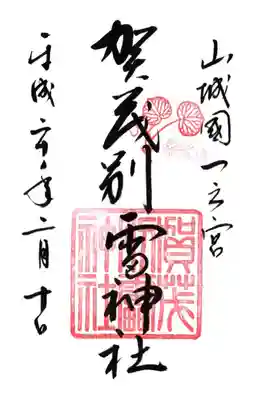 山城國一之宮
賀茂別雷神社
平成 年二月十日
賀茂
神社